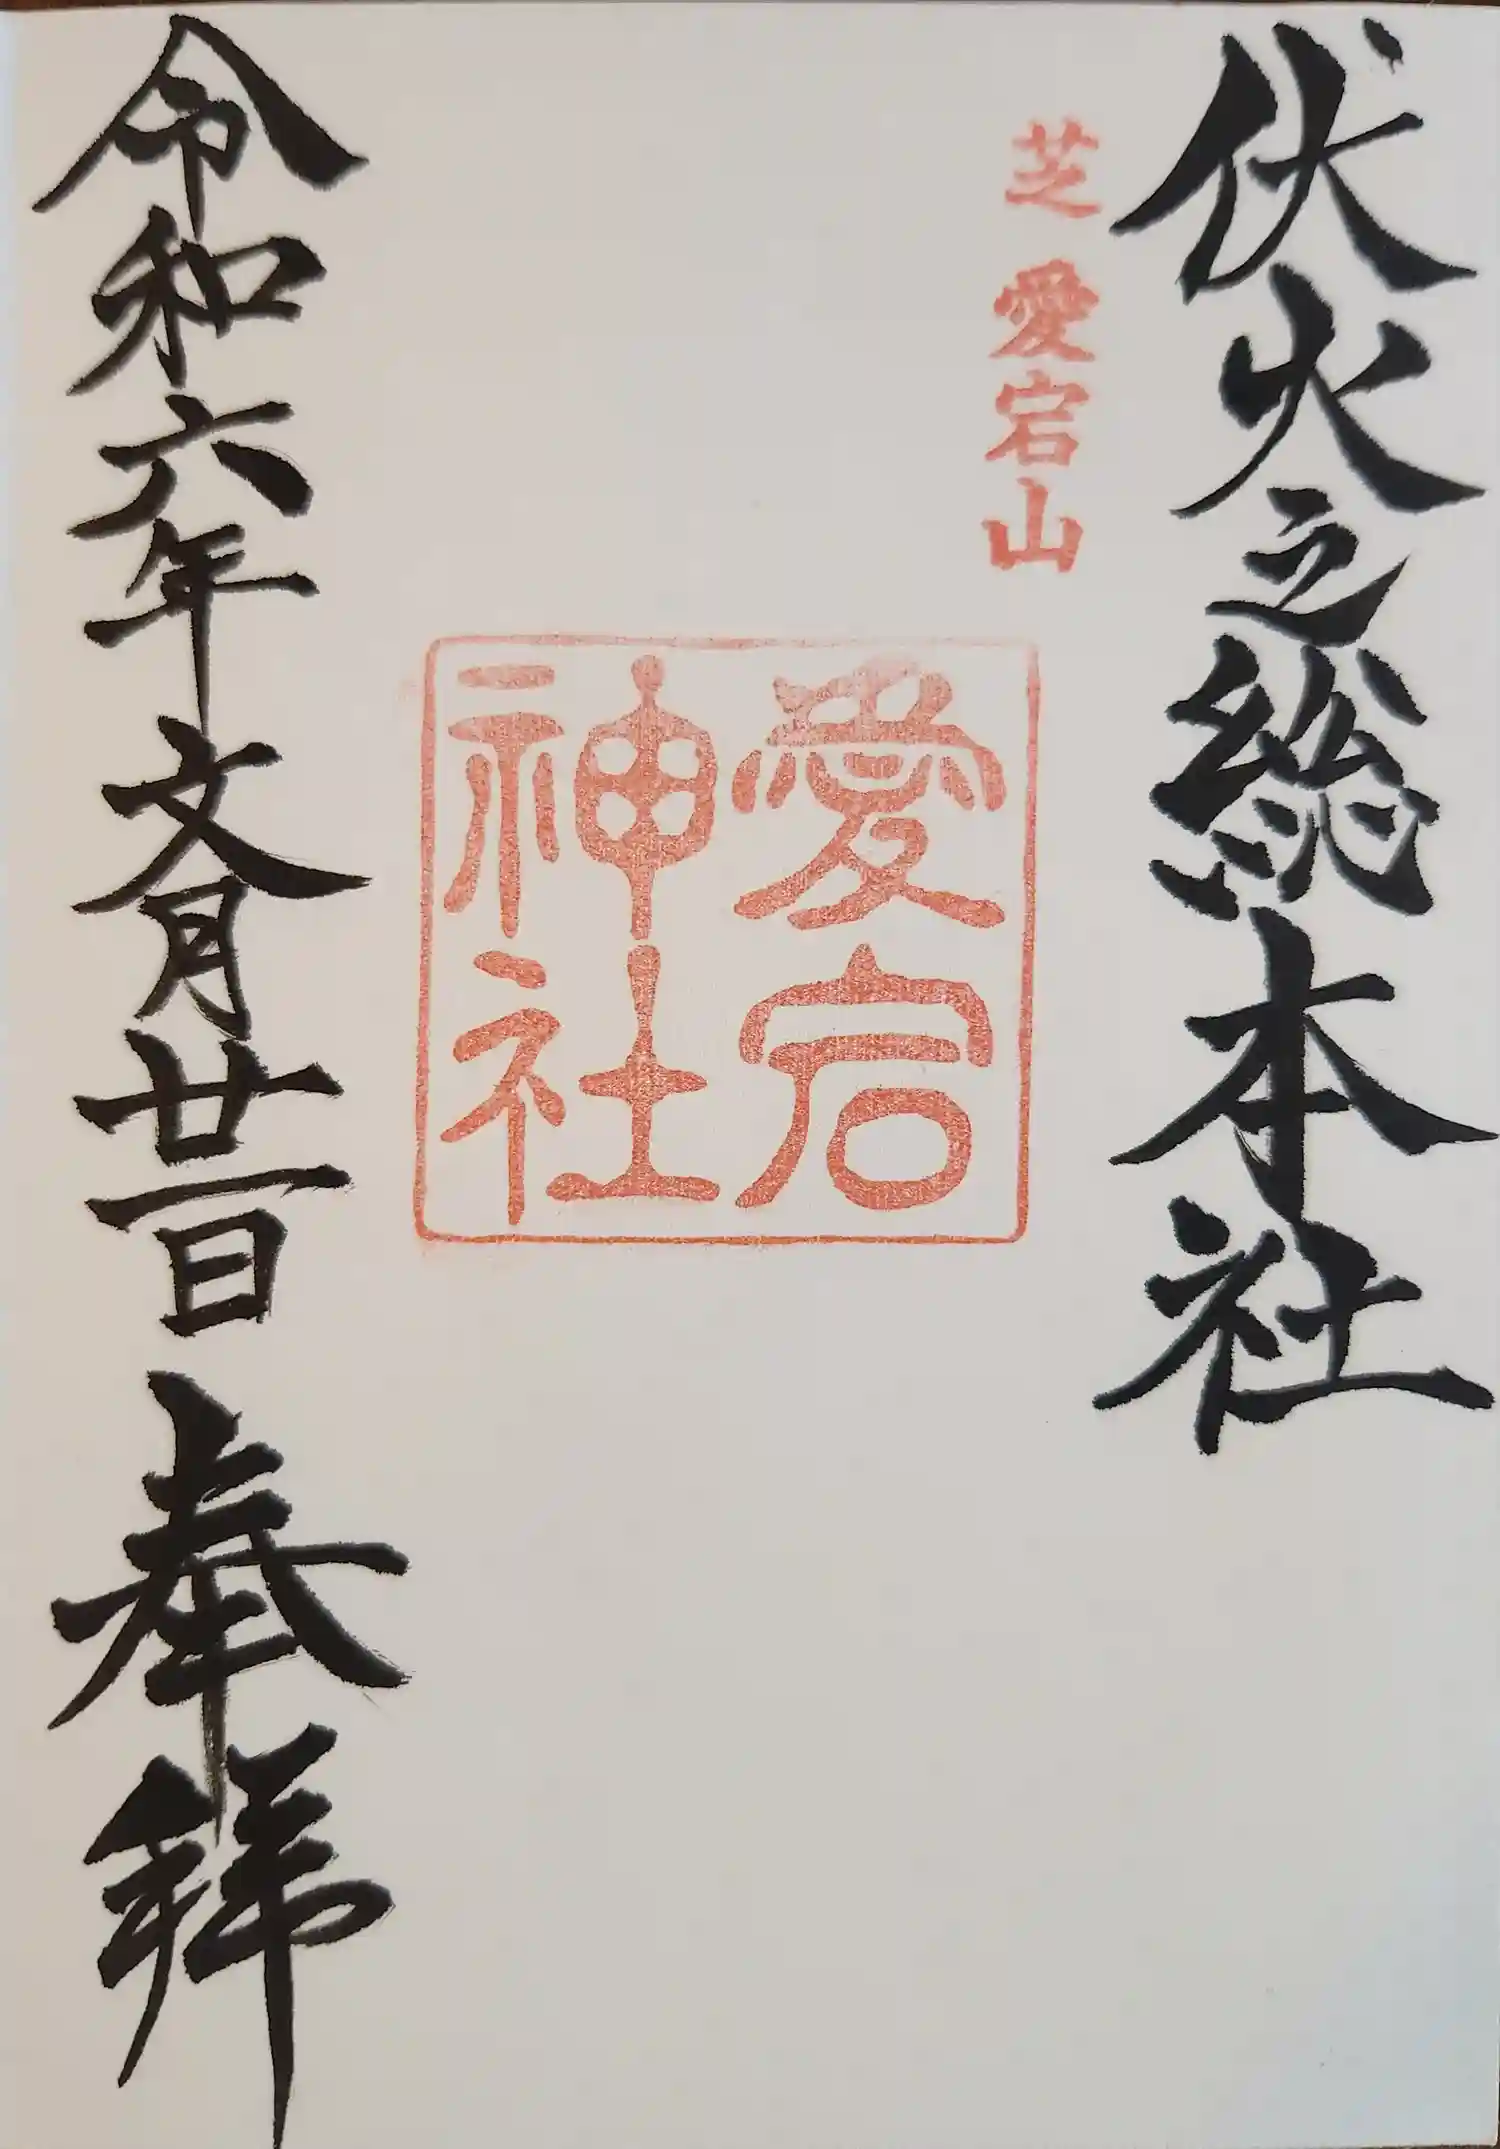 伏火之總本社
芝 愛宕山
愛宕
神社
令和六年文月廿一日 奉拜